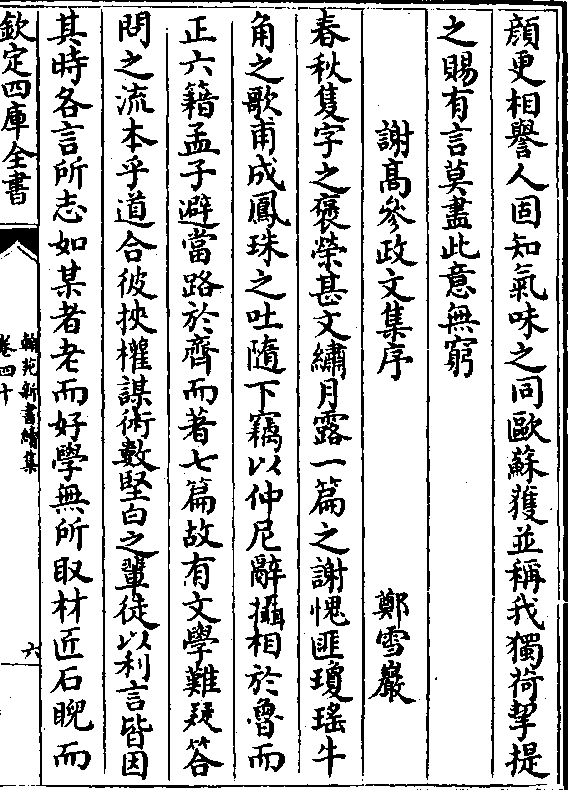 顔更相譽人固知氣味之同歐蘇獲並稱我獨荷挈提
之賜有言莫盡此意無窮
謝髙參政文集序 鄭雪巖
春秋隻字之褒榮甚文繡月露一篇之謝愧匪瓊瑤牛
角之歌甫成鳳珠之吐隨下竊以仲尼辭攝相於魯而
正六籍孟子避當路於齊而著七篇故有文學難疑答
問之流本乎道合彼挾權謀術數堅白之輩徒以利言皆因
其時各言所志如某者老而好學無所取材匠石睨而
欽定四庫全書
翰苑新書續集
卷四十
六